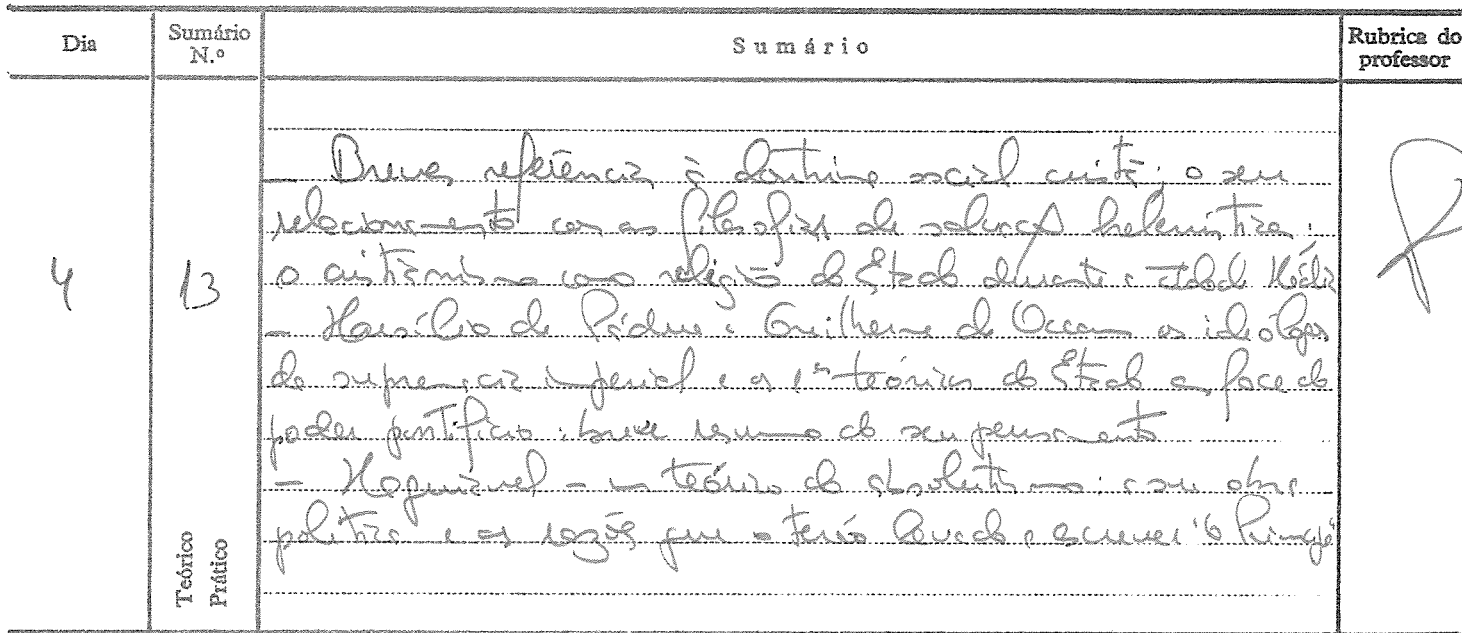 Dia
Sumário N.º
Sumário
Rubrica do professor
4
13
Teórico
Prático
— Breve referência à doutrina social cristã; o seu
relacionamento com as filosofias de salvação helenística;
o cristianismo como religião do Estado durante a Idade Média
— Marsílio de Pádua e Guilherme de Occam os ideólogos
da supremacia imperial e os 1ºs teóricos do Estado em face do
poder pontifício: breve resumo do seu pensamento
— Maquiavel - um teórico do absolutismo: a sua obra
política e as razões que o terão levado a escrever "O Príncipe